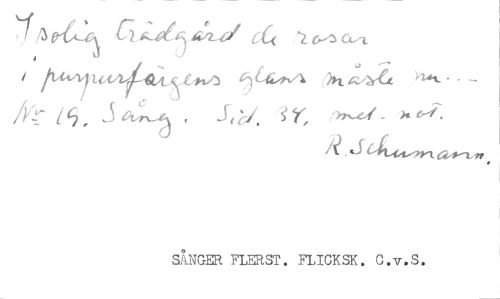 I solig trädgård de rosor
i purpurfärgens glans måste nu...
Nr 19. Sång. Sid. 34. mel. not.
R. Schumann.
SÅNGER FLERST. FLICKSK. C.v.S.